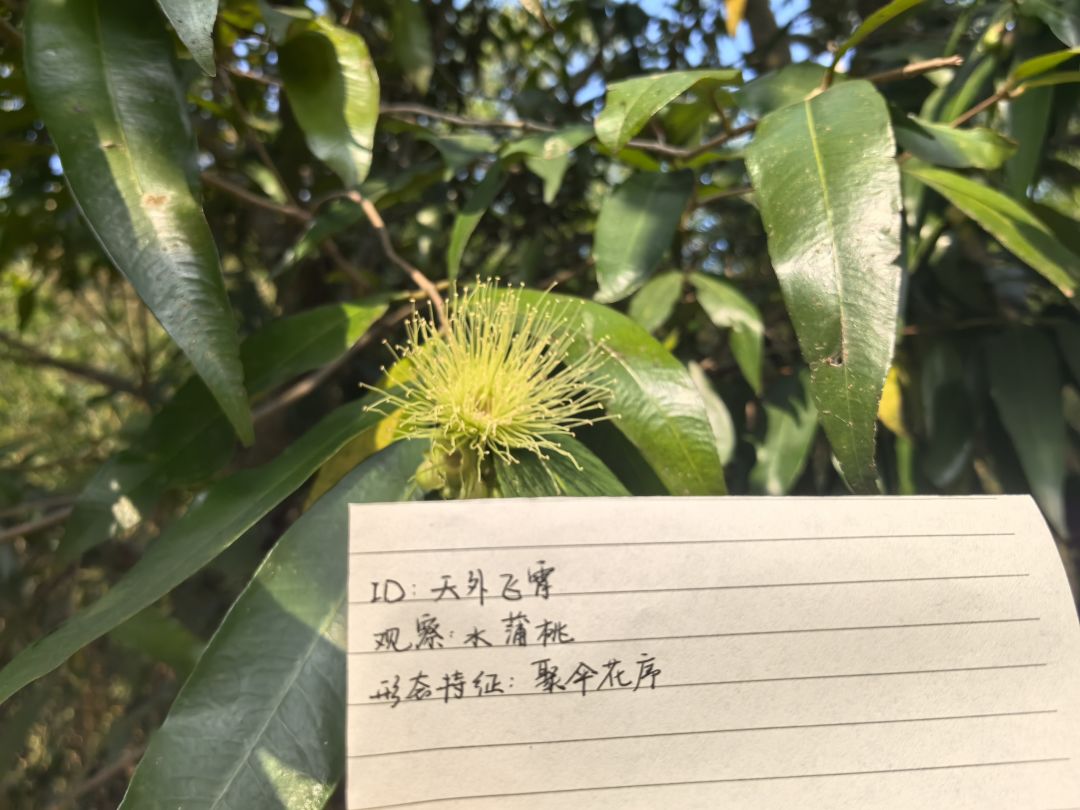 ID: 天外飞霄
观察: 水蒲桃
形态特征: 聚伞花序